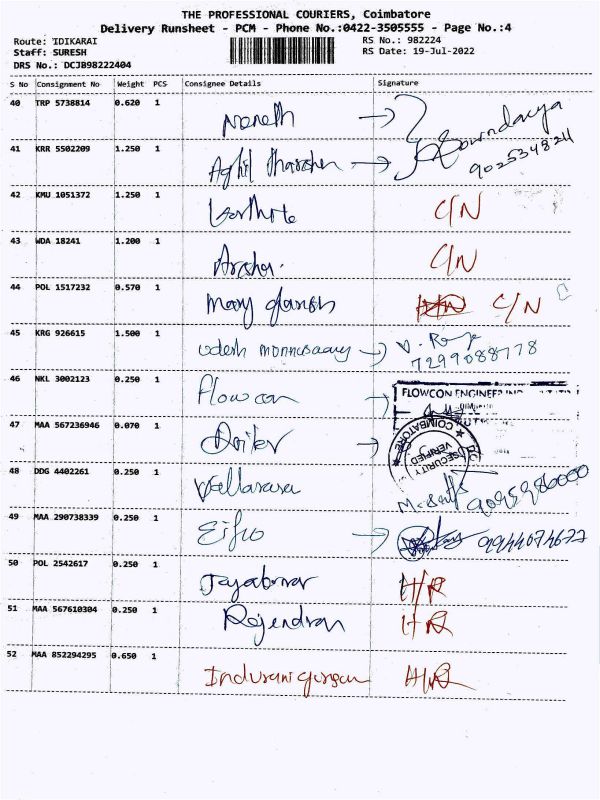 THE PROFESSIONAL COURIERS, Coimbatore
Delivery Runsheet - PCM - Phone No.:0422-3505555 - Page No.:4
Route: IDIKARAI RS No.: 982224
Staff: SURESH RS Date: 19-Jul-2022
DRS No.: DCJB98222404
S No Consignment No Weight PCS Consignee Details Signature
40 TRP 5738814 0.620 1
41 KRR 5502209 1.250 1 Sowndarya
9025348211
42 KMU 1051372 1.250 1 C/N
43 WDA 18241 1.200 1 C/N
44 POL 1517232 0.570 1 Mary C/N
45 KRG 926615 1.500 1 udesh
7299088778
46 NKL 3002123 0.250 1 Flowcon FLOWCON ENGINEERING
47 MAA 567236946 0.070 1 COIMBATORE SECURITY VERIFIED
48 DDG 4402261 0.250 1 9095980000
49 MAA 290738339 0.250 1 9944074677
50 POL 2542617 0.250 1 H/R
51 MAA 567610304 0.250 1 Rajendran H/R
52 MAA 852294295 0.650 1 H/R